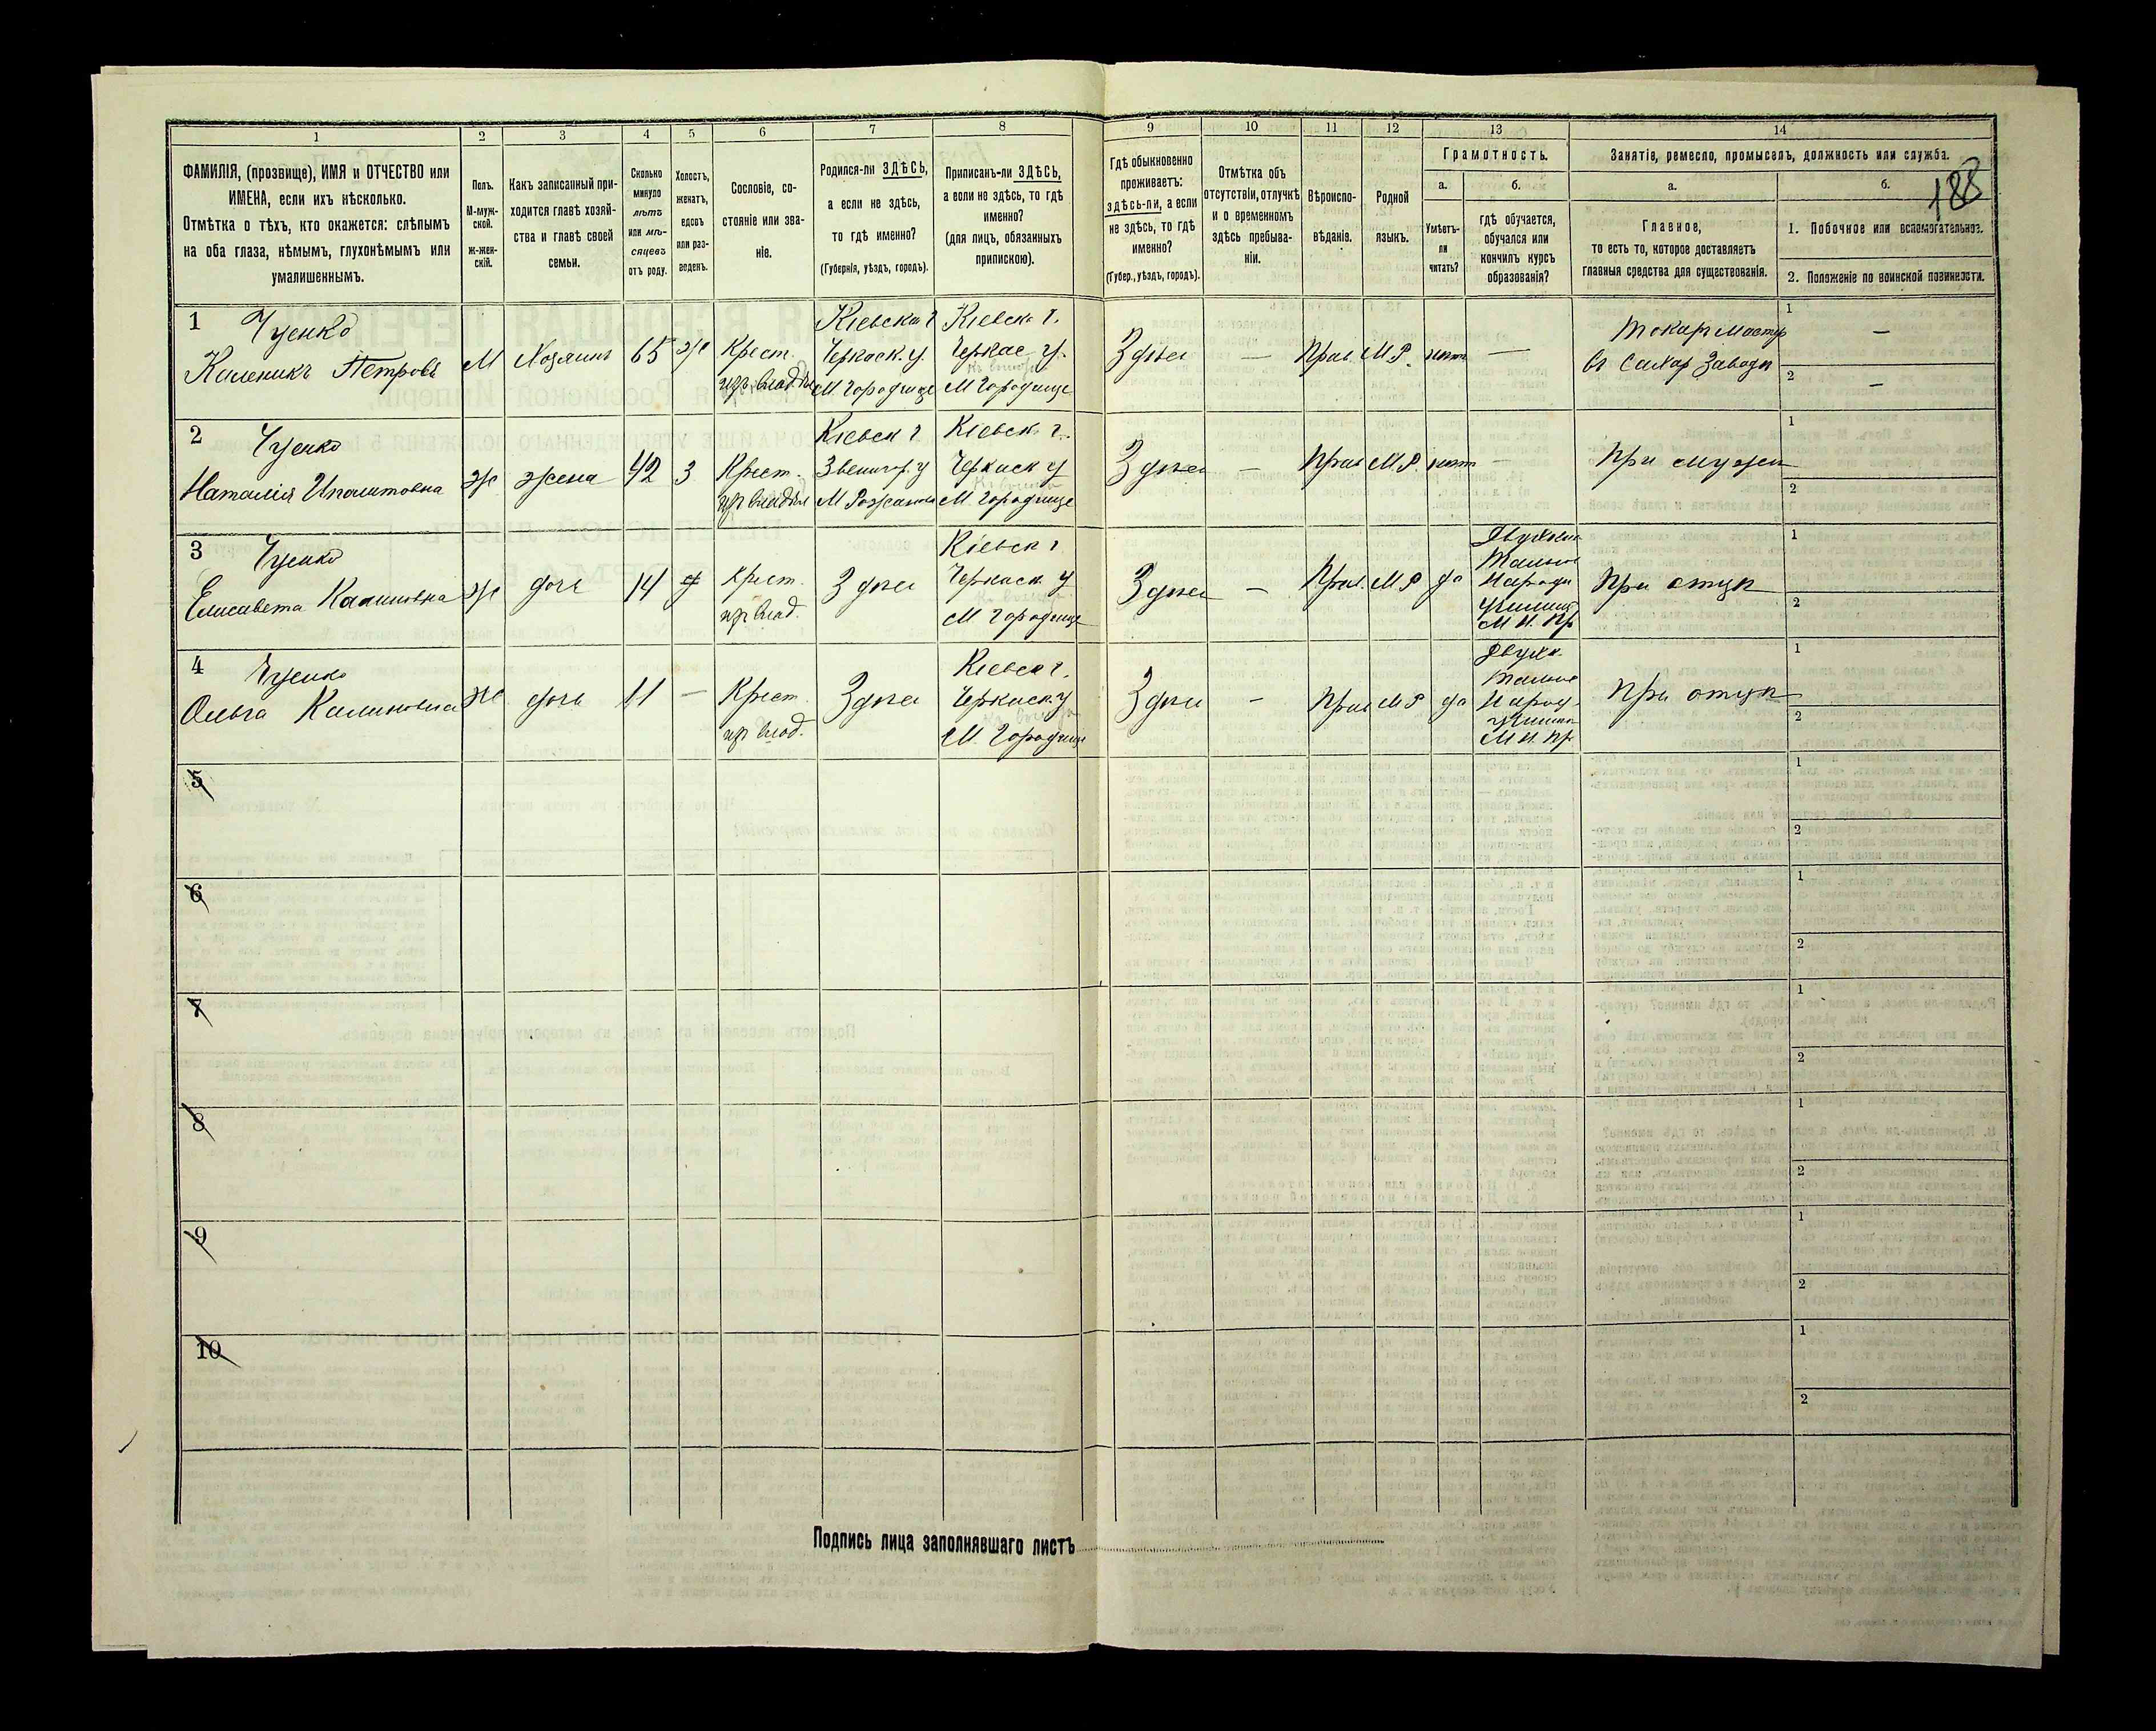 1
2
3
4
5
6
7
8
9
10
11
12
13
14
ФАМИЛІЯ, (прозвище), ИМЯ и ОТЧЕСТВО или
ИМЕНА, если ихъ нѣсколько.
Отмѣтка о тѣхъ, кто окажется: слѣпымъ
на оба глаза, нѣмымъ, глухонѣмымъ или
умалишеннымъ.
Полъ.
М-муж-
ской.
ж-жен-
скій.
Какъ записанный при-
ходится главѣ хозяй-
ства и главѣ своей
семьи.
Сколько
минуло
лѣтъ
или мѣ-
сяцевъ
отъ роду.
Холостъ,
женатъ,
вдовъ
или раз-
веденъ.
Сословіе, со-
стояніе или зва-
ніе.
Родился-ли ЗДѢСЬ,
а если не здѣсь,
то гдѣ именно?
(Губернія, уѣздъ, городъ).
Приписанъ-ли ЗДѢСЬ,
а если не здѣсь, то гдѣ
именно?
(для лицъ, обязанныхъ
припискою).
Гдѣ обыкновенно
проживаетъ:
здѣсь-ли, а если
не здѣсь, то гдѣ
именно?
(Губер., уѣздъ, городъ).
Отмѣтка объ
отсутствіи, отлучкѣ
и о временномъ
здѣсь пребыва-
ніи.
Вѣроиспо-
вѣданіе.
Родной
языкъ.
Грамотность.
а.
Умѣетъ-
ли
читать?
б.
гдѣ обучается,
обучался или
кончилъ курсъ
образованія?
Занятіе, ремесло, промыселъ, должность или служба.
а.
Главное,
то есть то, которое доставляетъ
главныя средства для существованія.
б.
188
1. Побочное или вспомогательное.
2. Положеніе по воинской повинности.
1
Чуенко
Каленикъ Петровъ
М
Хозяинъ
65
ж
Крест.
изъ владѣл
Кіевская г
Черкаск. у.
М Городище
Кіевск. г.
Черкас. у.
М Городище
Здѣсь
—
Прав.
М. Р.
нѣтъ
—
Токарь Мастер
въ Сахар Заводѣ
1
—
2
—
2
Чуенко
Наталія Иполитовна
ж
жена
42
З
Крест.
изъ владѣл
Кіевск г
Звенигор. у
Кіевск. г.
Черкаск у
М. Городище
Здѣсь
—
Прав
М. Р.
нѣтъ
—
При мужѣ
1
2
3
Чуенко
Елисавета Калиновна
ж
дочь
14
д
Крест.
изъ влад.
Здѣсь
Кіевск г
Черкаск. у
М Городище
Здѣсь
—
Прав.
М. Р
да
Двухкл
Народн
Училищ
М Н. Пр
При отцѣ
1
2
4
Чуенко
Ольга Калиновна
ж
дочь
11
—
Крест
изъ влад.
Здѣсь
Кіевск г.
Черкаск у
М. Городище
Здѣсь
—
Прав
М Р
да
Двухк.
Народ.
Училищ
М Н. Пр.
При отцѣ
1
2
5
1
2
6
1
2
7
1
2
8
1
2
9
1
2
10
1
2
Подпись лица заполнявшаго листъ